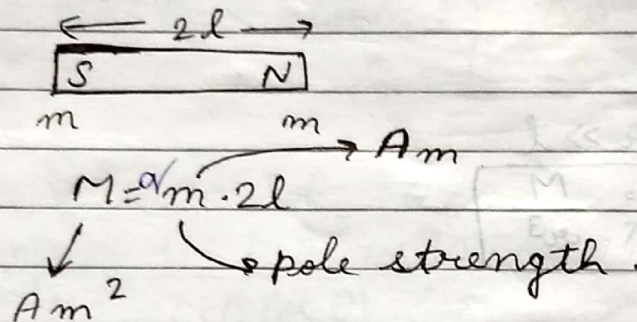 2l
S N
m m
Am
M = m · 2l
pole strength.
Am²